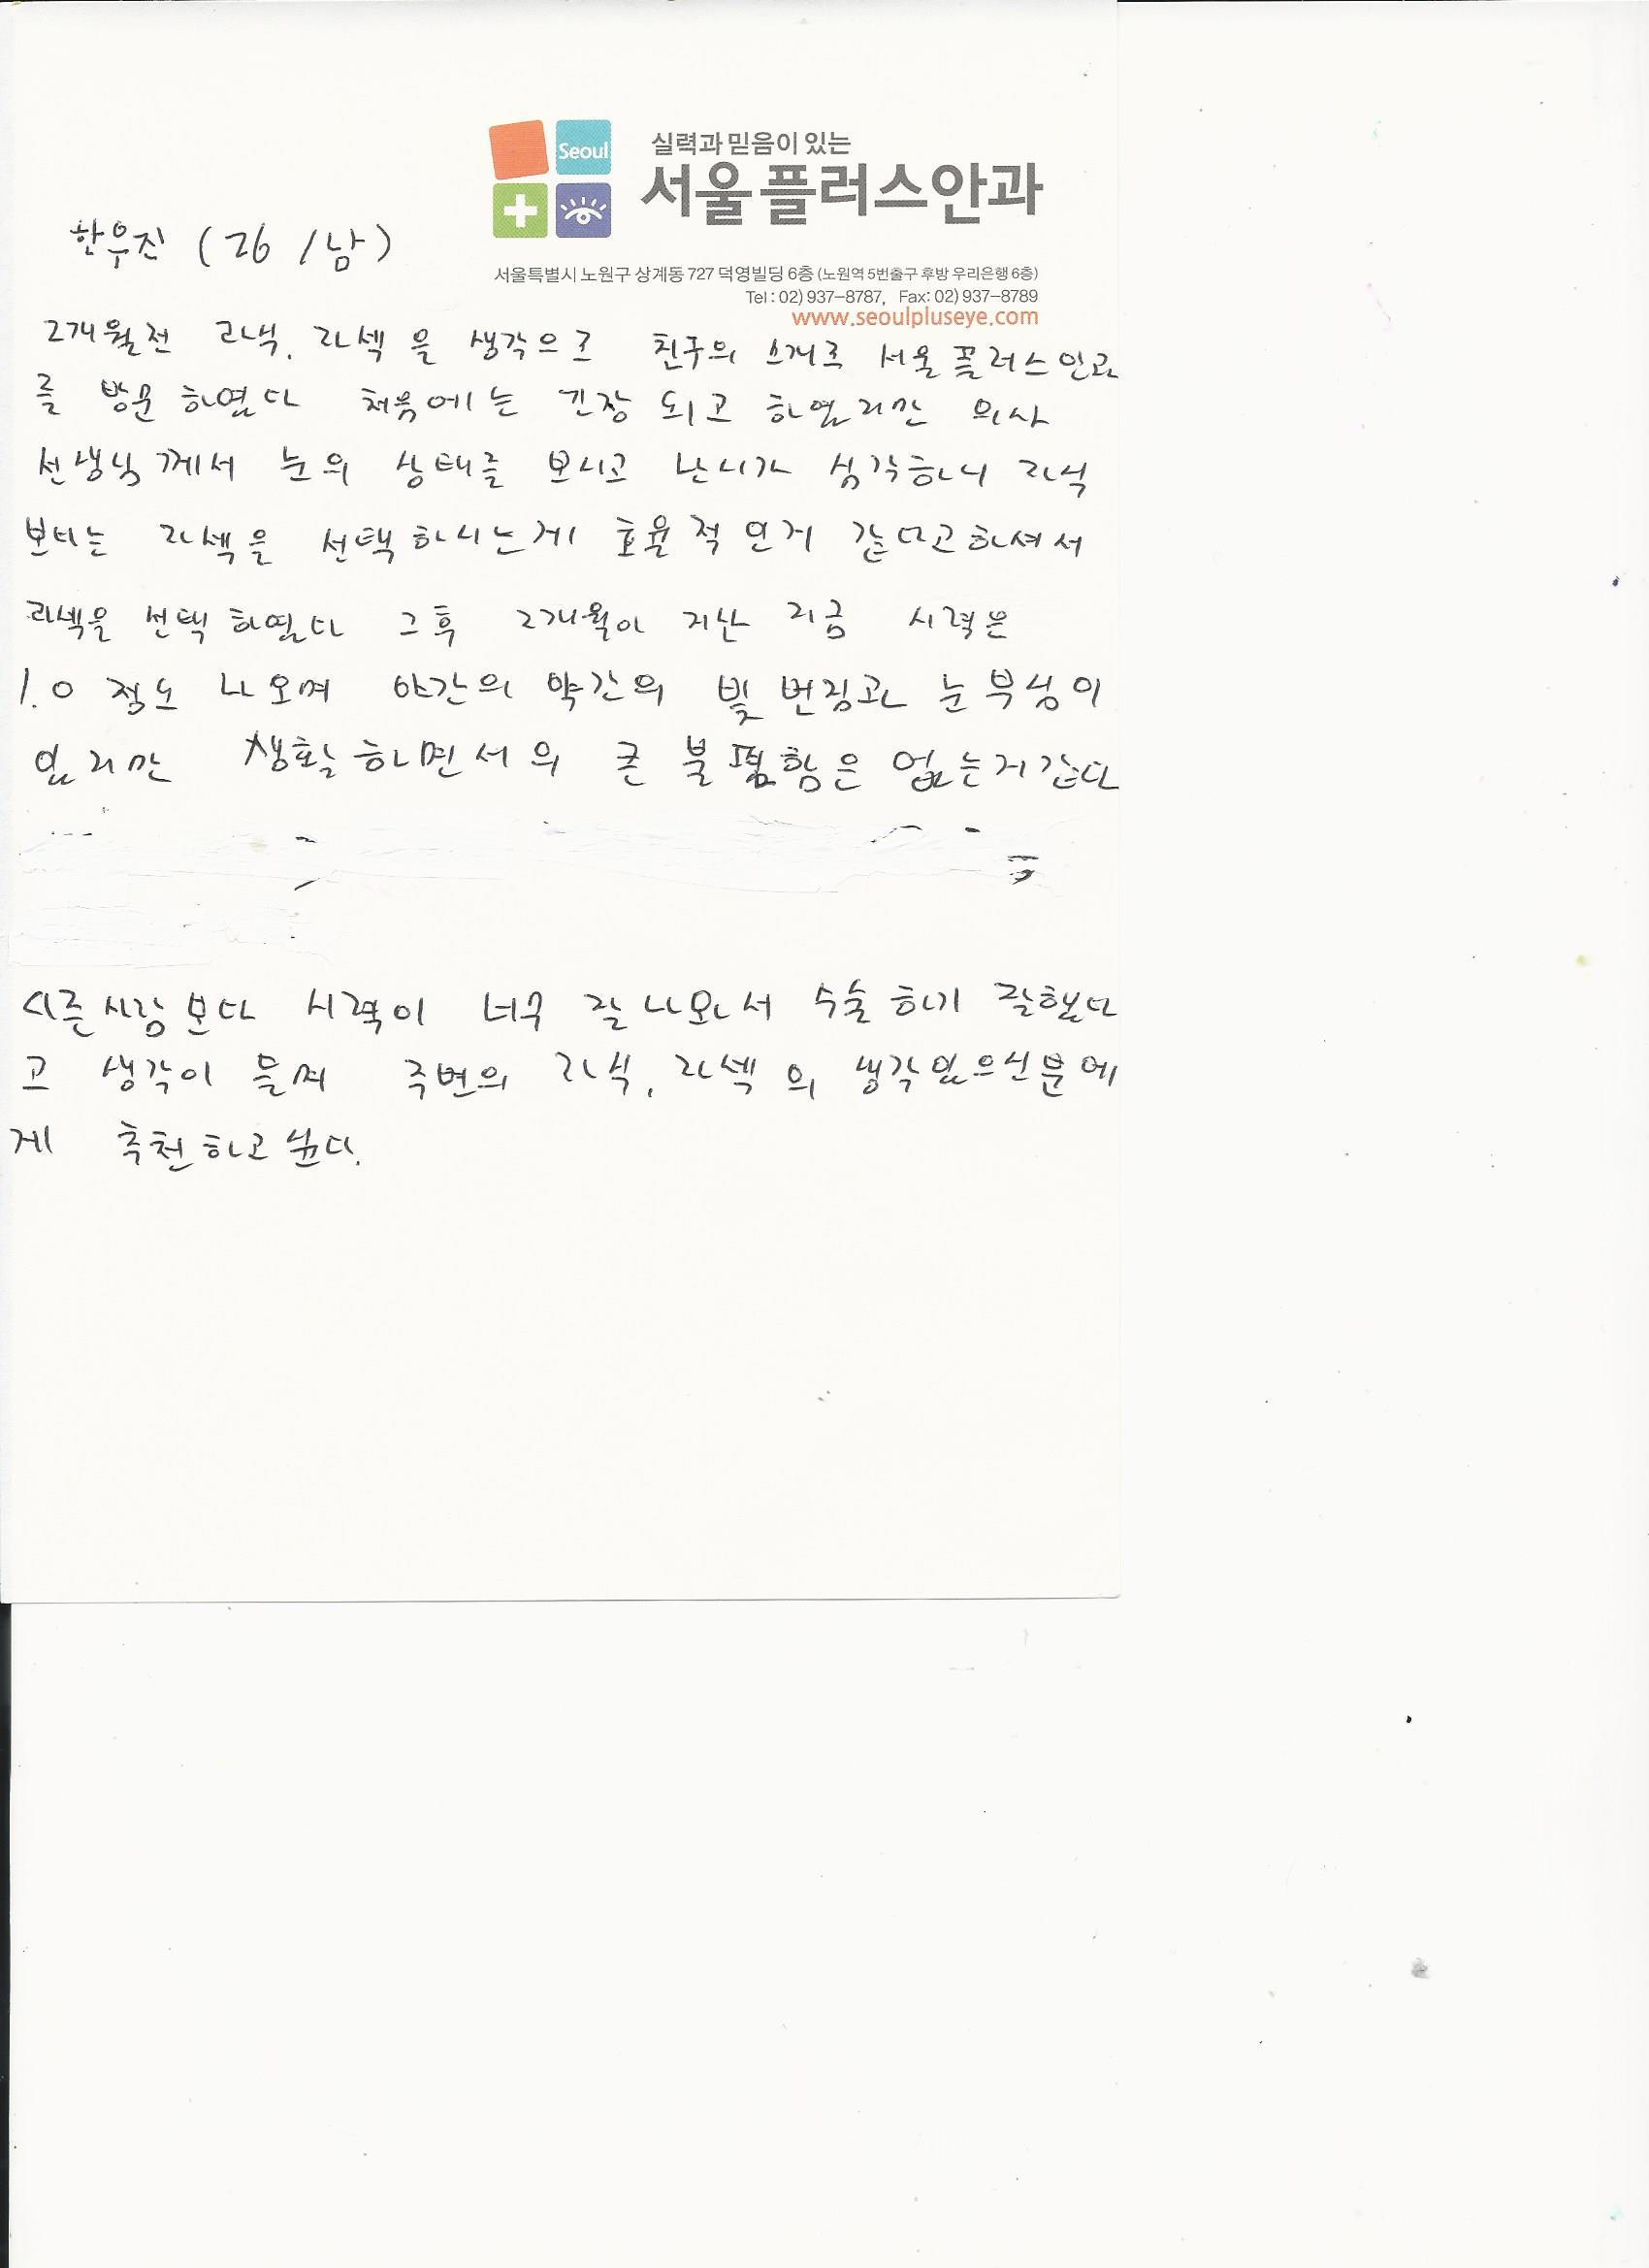 Seoul
실력과 믿음이 있는
서울플러스안과
한우진 (26 /남)
서울특별시 노원구 상계동 727 덕영빌딩 6층 (노원역 5번출구 후방 우리은행 6층)
Tel : 02) 937-8787, Fax: 02) 937-8789
www.seoulpluseye.com
2개월전 라식, 라섹을 생각으로 친구의 소개로 서울플러스안과
를 방문하였다 처음에는 긴장되고 하였지만 의사
선생님께서 눈의 상태를 보시고 난뒤 생각하니 라식
보다는 라섹을 선택하시는게 효율적인거 같다고하셔서
라섹을 선택하였다 그후 2개월이 지난 지금 시력은
1.0 정도 나오며 야간의 약간의 빛 번짐과 눈부심이
있지만 생활하면서의 큰 불편함은 없는거같다
다른사람보다 시력이 너무 잘 나와서 수술하기 잘했다
고 생각이 들며 주변의 라식, 라섹의 생각있으신분에
게 추천하고싶다.